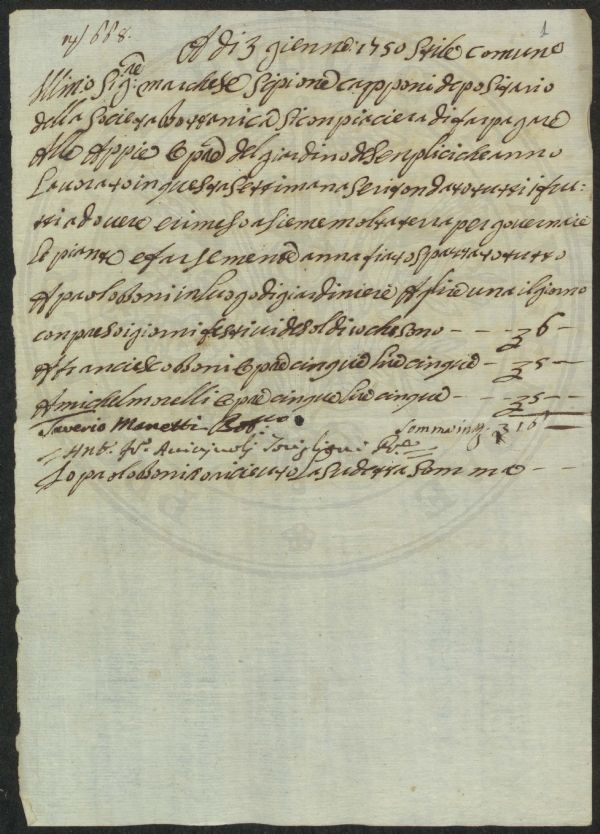 n/ 668. 1
A di 3 gienno: 1750 stile comune
Ill:mo Sig:re marchese Sipione capponi depositario
della Societa bottanica si conpiaciera di far pagare
alle Appie Opre del giardino de Senplici che anno
Lavorato in questa Settimana Se ritondato tutti i fru:
tti a dovere e rimeso asieme molta terra per governare
le piante e far semente annafiato spazzato tutto
A paolo Boni in luogo di giardiniere A lire una il giorno
conpresoi giorni festivi di Soldi 10 che sono - - - £ 6 -
A franciesco Boni Opre cinque lire cinque - £ 5 - -
A michel morelli Opre cinque lire cinque - - £ 5 - -
Saverio Manetti Somma in q: £ 16
Ant. 
Io paolo Boni o riceuto La sudetta Somma - -